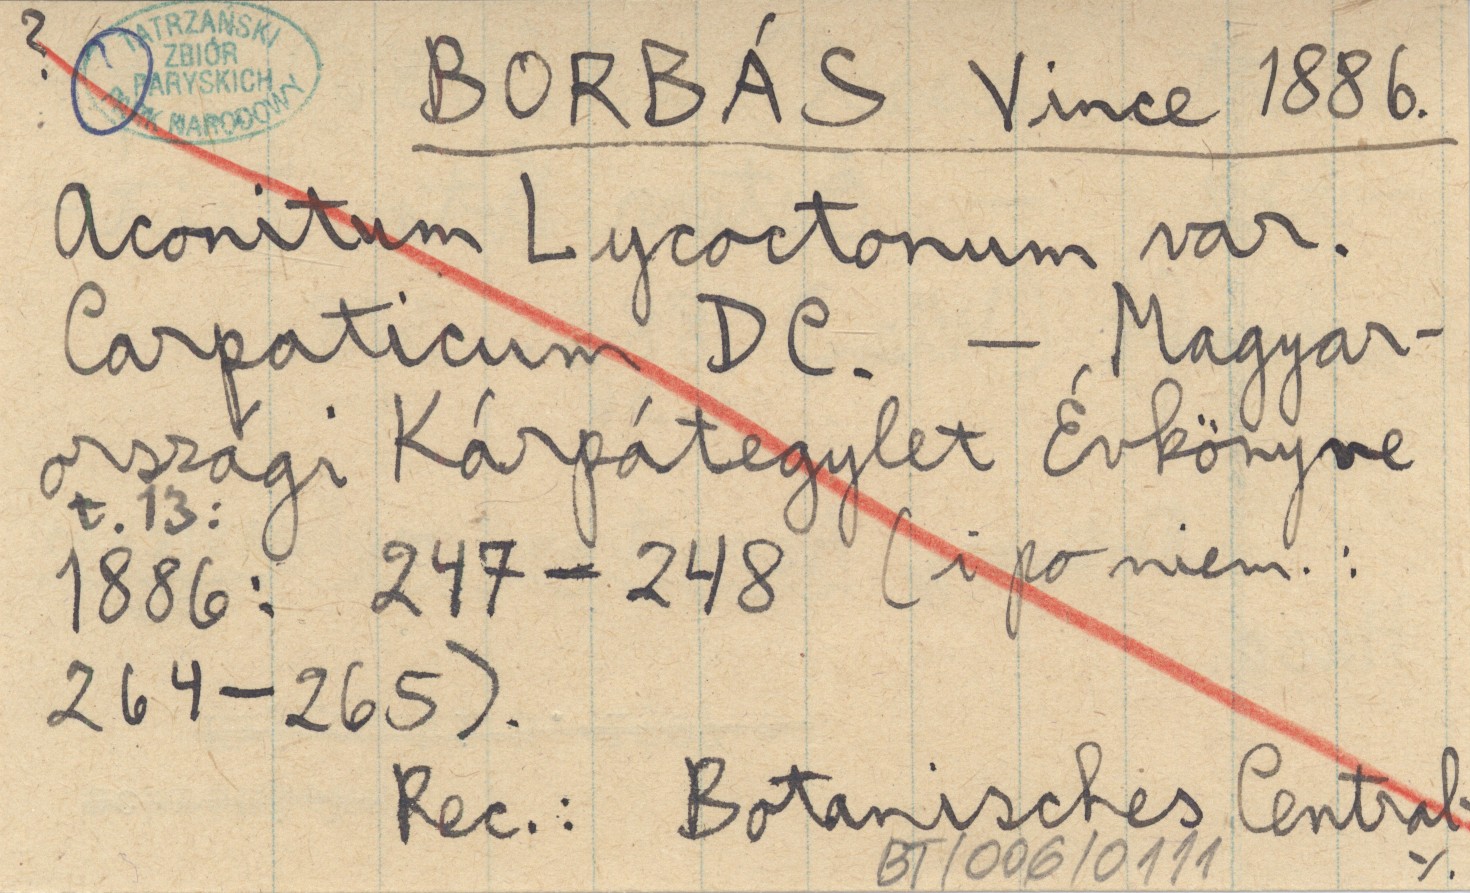 ?
TATRZAŃSKI
ZBIÓR
PARYSKICH
PARK NARODOWY
BORBÁS Vince 1886.
Aconitum Lycoctonum var.
Carpaticum DC. — Magyar-
országi Kárpátegylet Évkönyve
t. 13:
1886: 247 – 248 (i po niem.:
264 – 265).
Rec.: Botanisches Central-
BT/006/0111